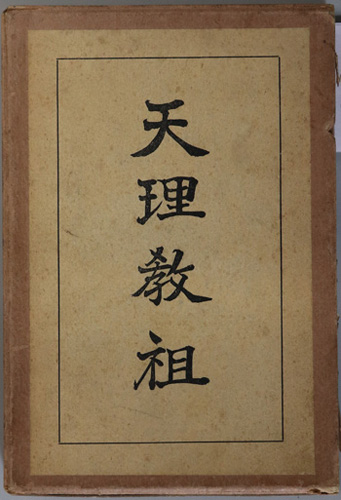 天理教祖